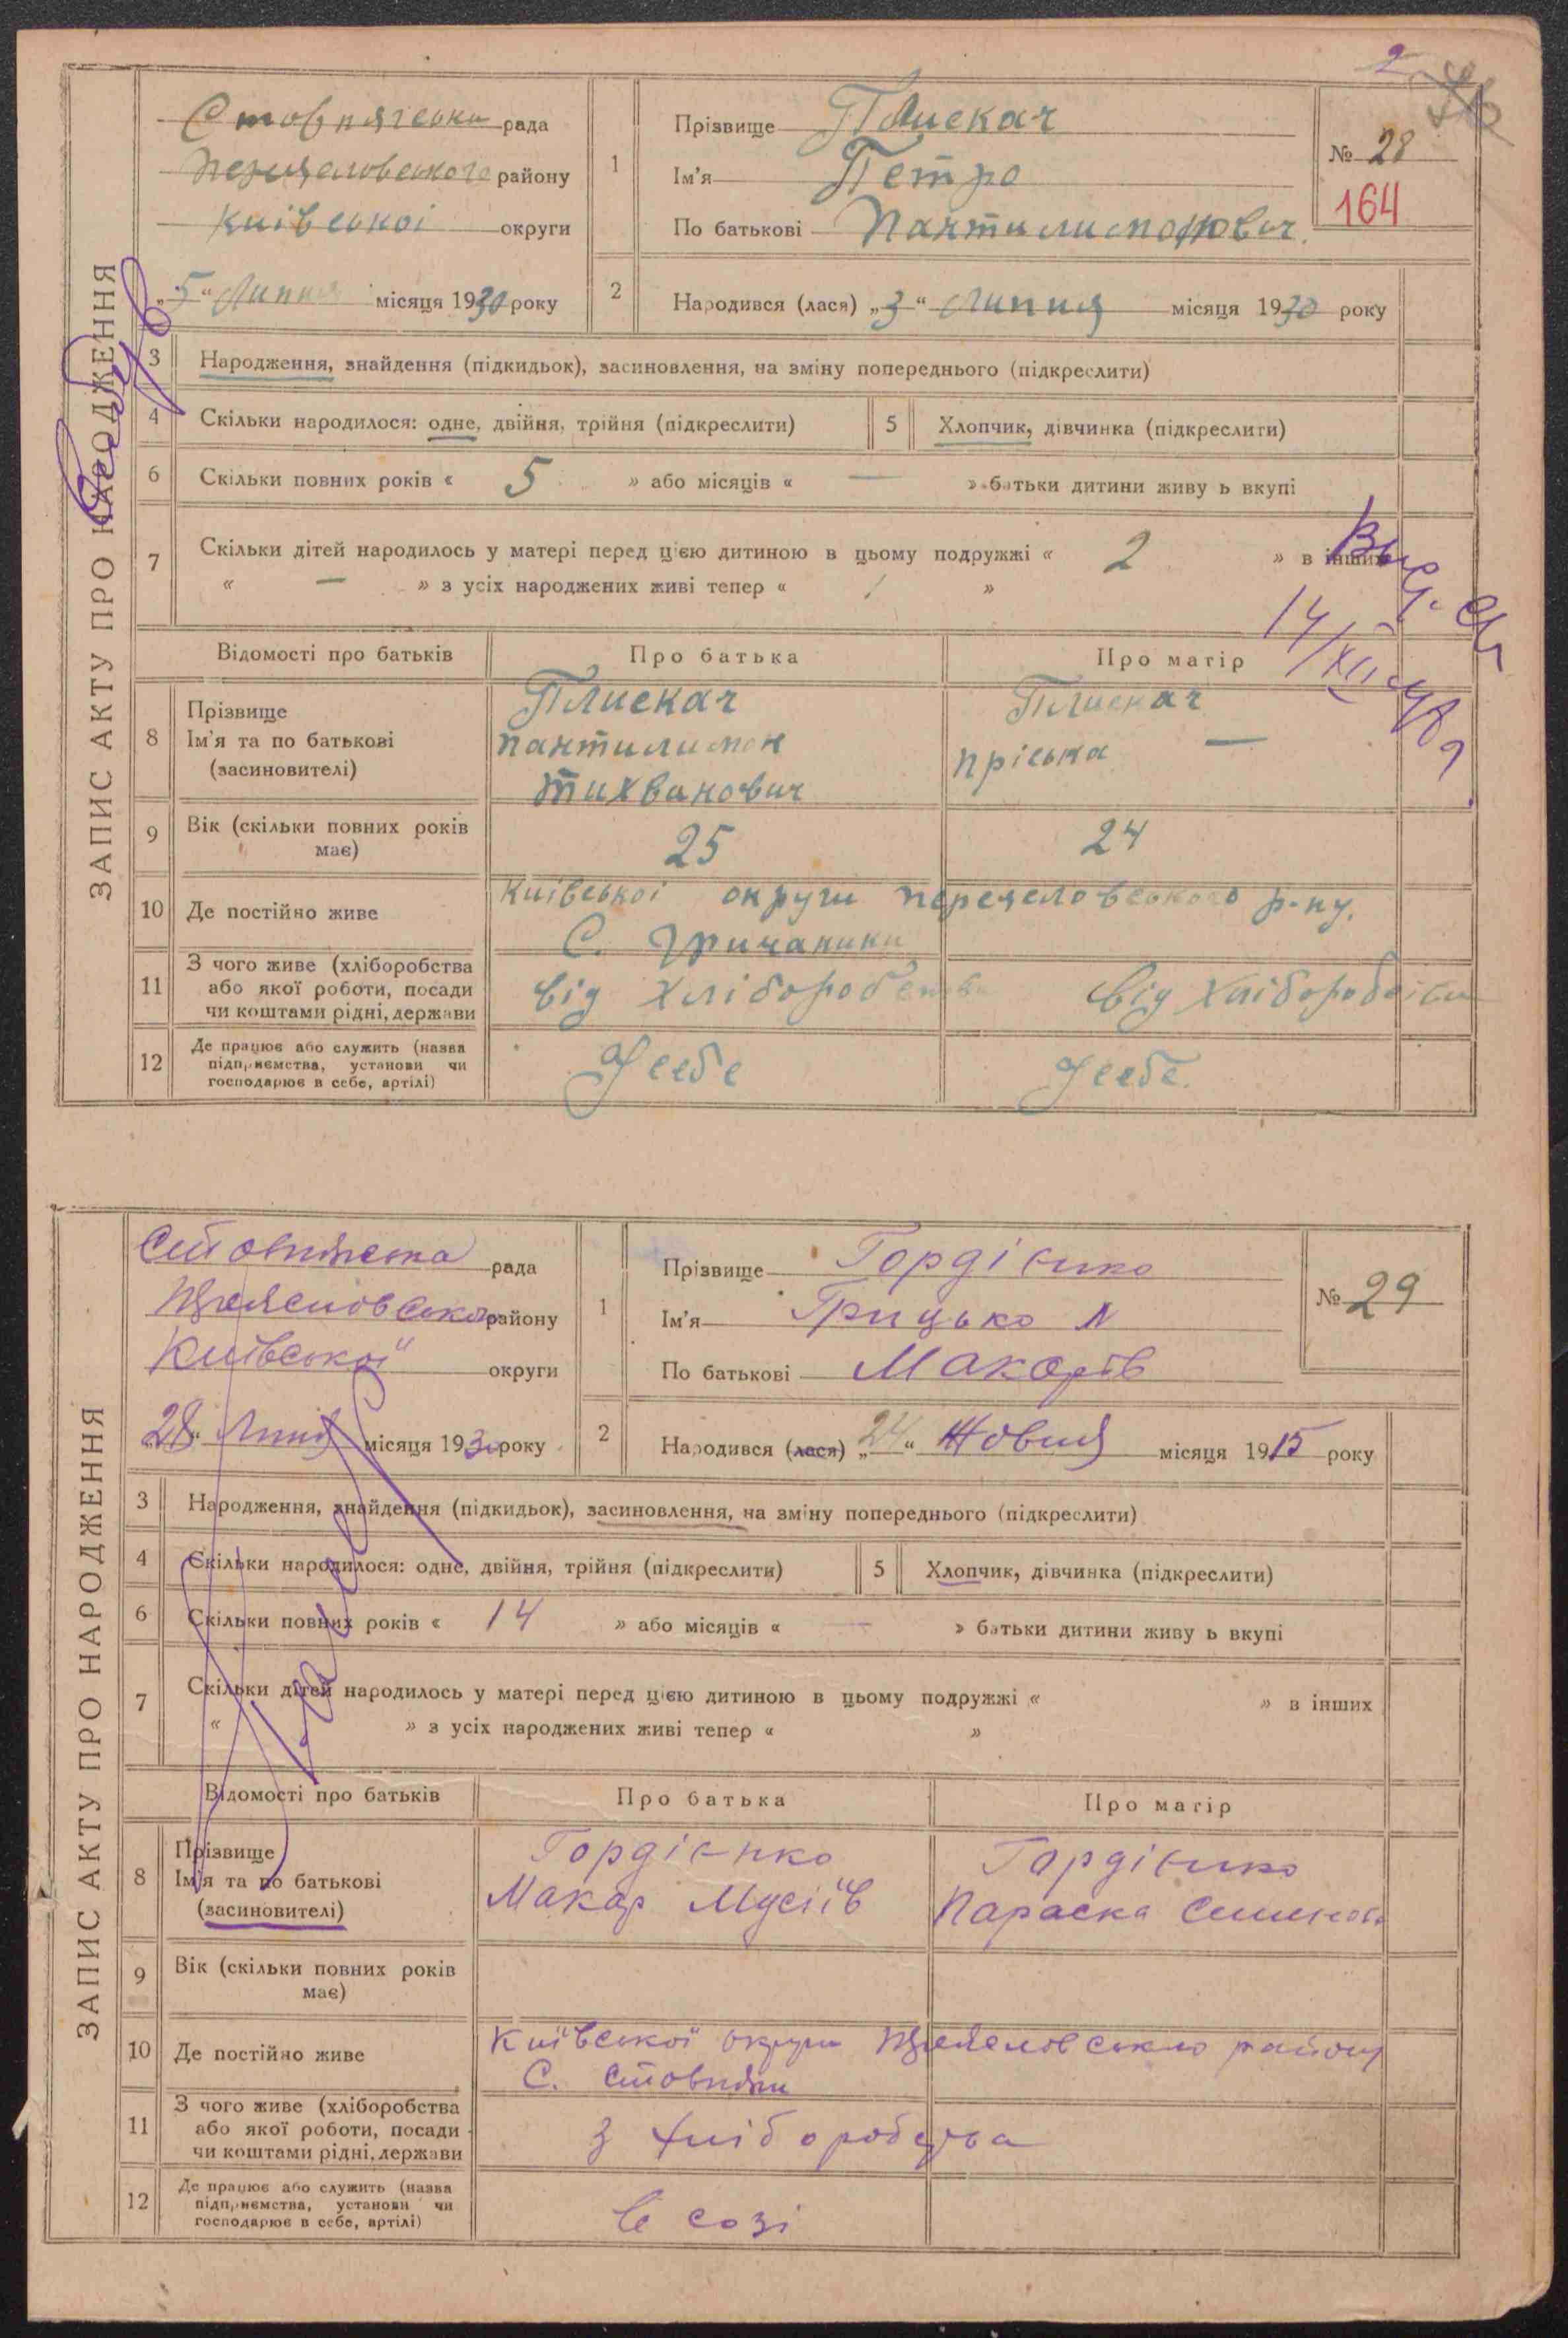 2
Стовпягська рада
Переяславського району
Київської округи
„5“ Липня місяця 1930 року
1
Прізвище Плискач
Ім'я Петро
По батькові Пантилимонович.
№ 28
164
2
Народився (лася) „3“ Липня місяця 1930 року
ЗАПИС АКТУ ПРО НАРОДЖЕННЯ
3
Народження, знайдення (підкидьок), засиновлення, на зміну попереднього (підкреслити)
4
Скільки народилося: одне, двійня, трійня (підкреслити)
5
Хлопчик, дівчинка (підкреслити)
6
Скільки повних років « 5 » або місяців « — » батьки дитини живу ь вкупі
7
Скільки дітей народилось у матері перед цією дитиною в цьому подружжі « 2 » в інших
« — » з усіх народжених живі тепер « 1 »
14/XII
Відомості про батьків
Про батька
Про матір
8
Прізвище
Ім'я та по батькові
(засиновителі)
Плискач
Пантилимон
Тихванович
Плискач
Пріська —
9
Вік (скільки повних років
має)
25
24
10
Де постійно живе
Київської округи Переяславського р-ну.
С.
11
З чого живе (хліборобства
або якої роботи, посади
чи коштами рідні, держави
від хліборобства
від хліборобства
12
Де працює або служить (назва
підприємства, установи чи
господарює в себе, артілі)
У себе
У себе.
Стовпягська рада
району
Київської округи
„28“ Липня місяця 1930 року
1
Прізвище Гордієнко
Ім'я Грицько
По батькові Макарів
№ 29
2
Народився (лася) „24“ Жовтня місяця 1915 року
ЗАПИС АКТУ ПРО НАРОДЖЕННЯ
3
Народження, знайдення (підкидьок), засиновлення, на зміну попереднього (підкреслити)
4
Скільки народилося: одне, двійня, трійня (підкреслити)
5
Хлопчик, дівчинка (підкреслити)
6
Скільки повних років « 14 » або місяців « — » батьки дитини живу ь вкупі
7
Скільки дітей народилось у матері перед цією дитиною в цьому подружжі « » в інших
« » з усіх народжених живі тепер « »
Відомості про батьків
Про батька
Про матір
8
Прізвище
Ім'я та по батькові
(засиновителі)
Гордієнко
Макар Мусіїв
Гордієнко
Параска
9
Вік (скільки повних років
має)
10
Де постійно живе
Київської округи району
С. Стовпяги
11
З чого живе (хліборобства
або якої роботи, посади
чи коштами рідні, держави
З хліборобства
12
Де працює або служить (назва
підприємства, установи чи
господарює в себе, артілі)
в созі